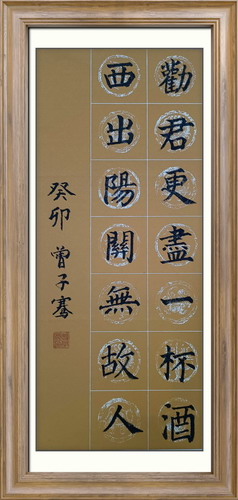 勸君更盡一杯酒
西出陽關無故人
癸卯 曾子騫